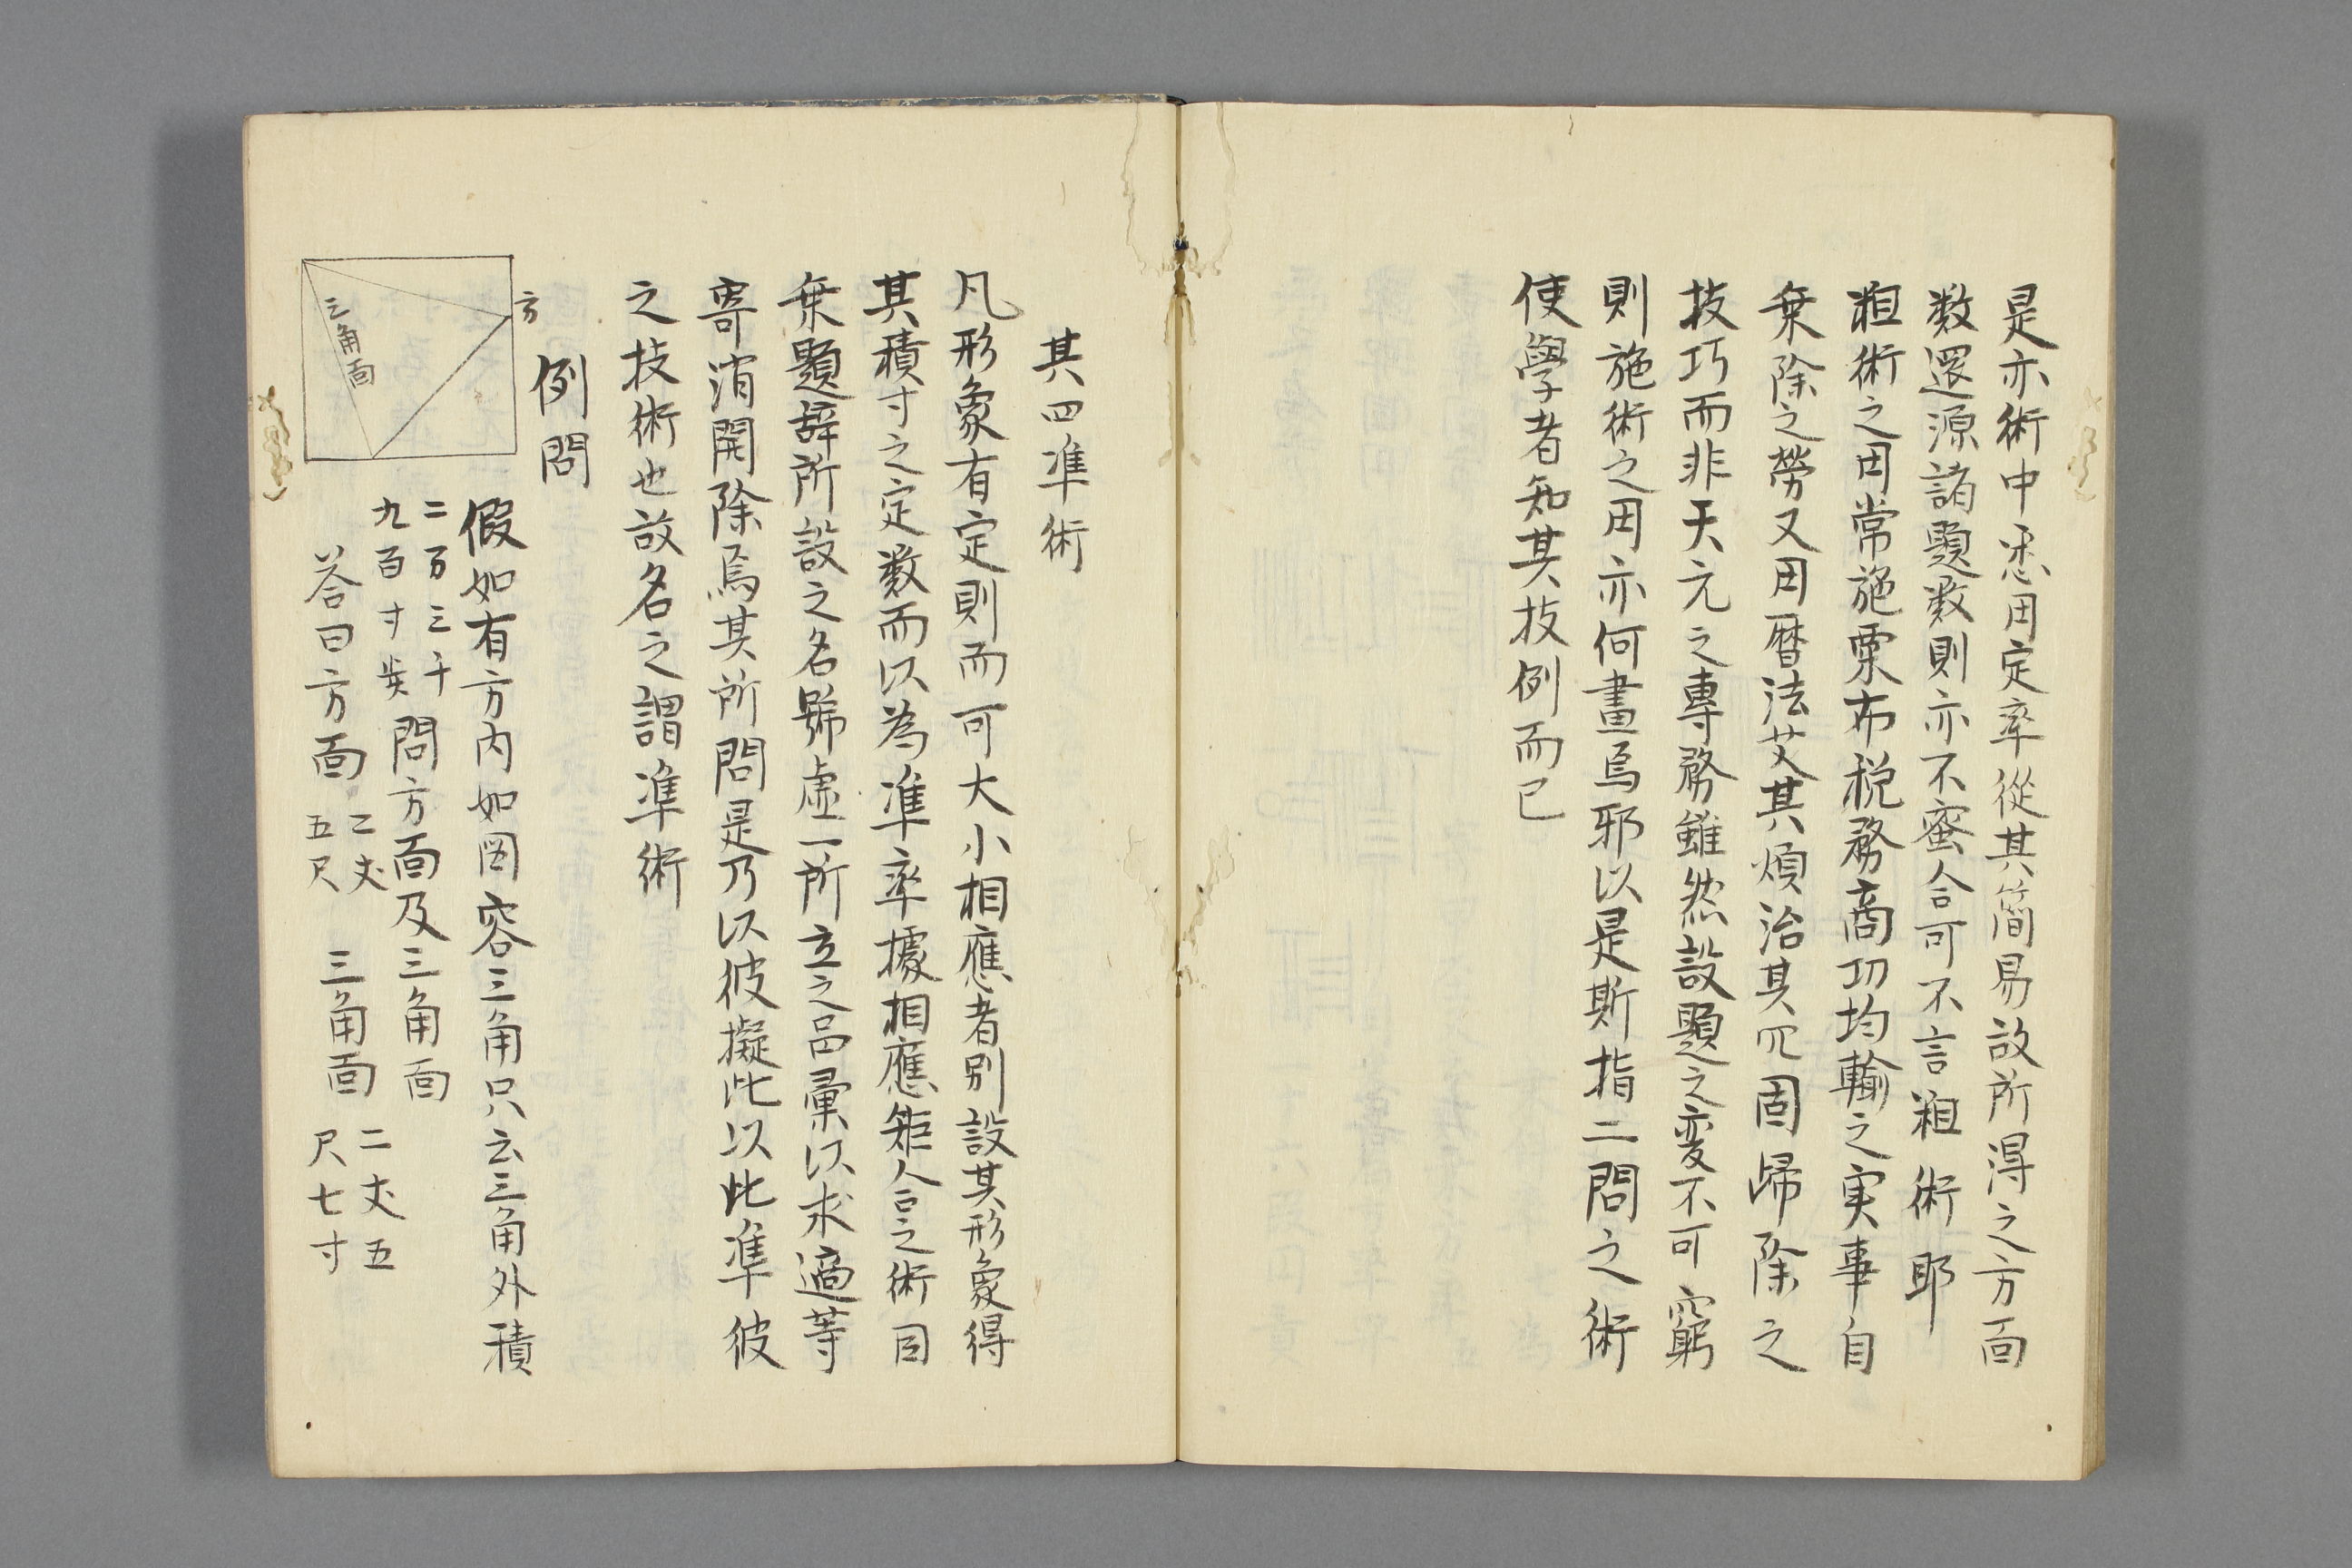 是亦術中悉用定率從其簡易故所得之方面
数還源諸題数則亦不蜜合可不言粗術耶
粗術之用常施粟布税務商功均輸之実事自
乗除之勞又用暦法艾其煩治其冗固歸除之
技巧而非天元之專務雖然設題之変不可窮
則施術之用亦何畫焉耶以是斯指二問之術
使學者知其技例而已
其四準術
凡形象有定則而可大小相應者別設其形象得
其積寸之定数而以為準率據相應矩合之術因
乗題辞所設之名號虚一所立之品彙以求適等
寄消開除焉其所問是乃以彼擬此以此準彼
之技術也故名之謂準術
例問
方
三角面
假如有方内如図容三角只云三角外積
二万三千
九百寸奌問方面及三角面
答曰方面二丈五尺 三角面二丈五尺七寸